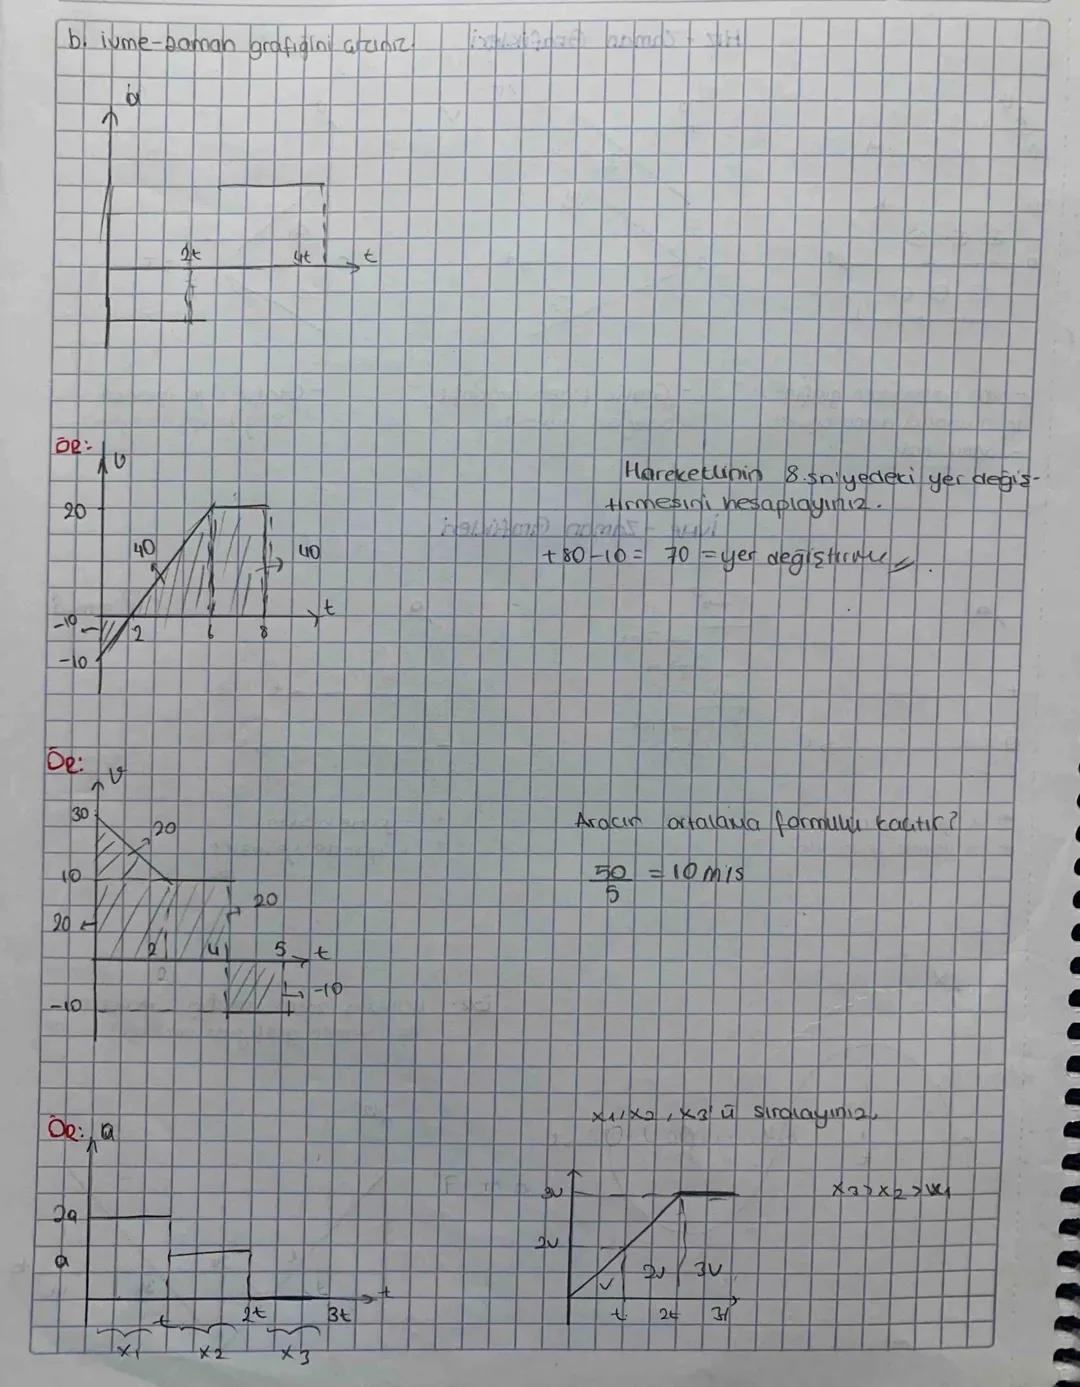 b. ivme-zaman grafiğini çiziniz.
a
2t
4t
t
ÖR:
v
20
40
40
Hareketlinin 8.sn'yedeki yer değiş-
tirmesini hesaplayınız.
+80-10= 70 =yer değiştirme
t
-10
2
6
8
-10
ÖR:
v
30
20
Aracın ortalama formülü kaçtır?
50/5 = 10 m/s
10
20
20
2
4
5
t
-10
-10
ÖR:
a
x1, x2, x3'ü sıralayınız.
2a
a
t
2t
3t
t
x1
x2
x3
3v
2v
v
2v
3v
t
2t
3t
x3>x2>x1